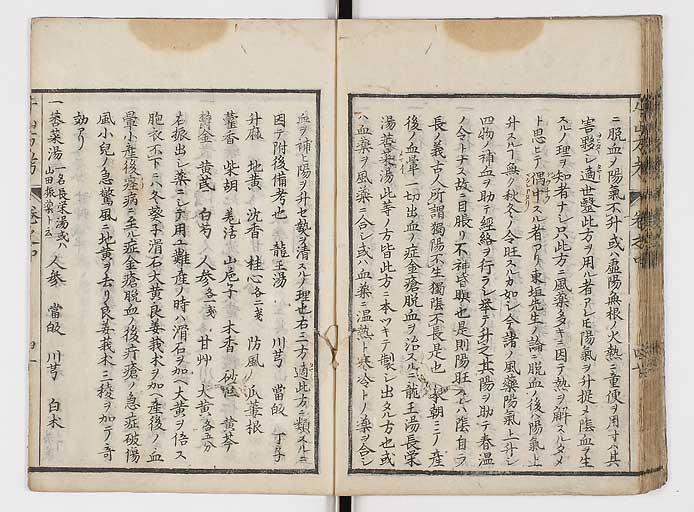 ニ脱血ノ陽氣不升或ハ虚陽無根ノ火熱ニ童便ヲ用寸ハ其
害夥シ適世醫此方ヲ用ル者アレ𪜈陽氣ヲ升提メ陰血ヲ生
スルノ理ヲ知者ナシ只此方ニ風薬多キニ因テ熱ヲ解スルタメ
ト思ヒテ偶中スル者アリ東垣先生ノ論ニ脱血ノ後ハ陽氣上
升スルコ無ク秋冬ノ令旺スルカ如シ今諸ノ風薬陽氣上升シ
四物ノ補血ヲ助テ經絡ヲ行ラシ挙テ升之其陽ヲ助テ春温
ノ令トナス故ニ目脹ノ不神昏瞑也是則陽旺スレハ陰自ラ
長ノ義古人所謂獨陽不生獨陰不長是也本朝ニテ産
後ノ血暈一切出血ノ症金瘡脱血ヲ治スルニ龍王湯長栄
湯蓉菜湯此等ノ方皆此方ニ本ツキテ製シ出タル方也或
ハ血薬ヲ風薬ニ合シ或ハ血薬ニ温熱ト寒冷トノ薬ヲ合シ
血ヲ補ヒ陽ヲ升セ熱ヲ清スルノ理也右三方適此方ニ類スルニ
因テ附後備考也 龍王湯 川芎 當皈 丁子
升麻 地黄 沈香 桂心各二戔 防風 瓜蔞根
藿香 柴胡 羗活 山梔子 木香 砂仁 黄芩
欝金 黄芪 白芍 人参各一戔 甘艸 大黄各五分
右振出シ薬ニシテ用ユ難産ノ時ハ滑石ヲ加ヘ大黄ヲ倍ス
胞衣不下ニハ冬葵子滑石大黄良姜莪朮ヲ加ヘ産後ノ血
暈小産後痓病ニ至ル症金瘡脱血ノ後疔瘡ノ急症破傷
風小兒ノ急驚風ニ地黄ヲ去リ良姜莪朮三稜ヲ加テ奇
効アリ
一蓉菜湯 一名長栄湯或ハ山田振薬ト云 人参 當皈 川芎 白朮